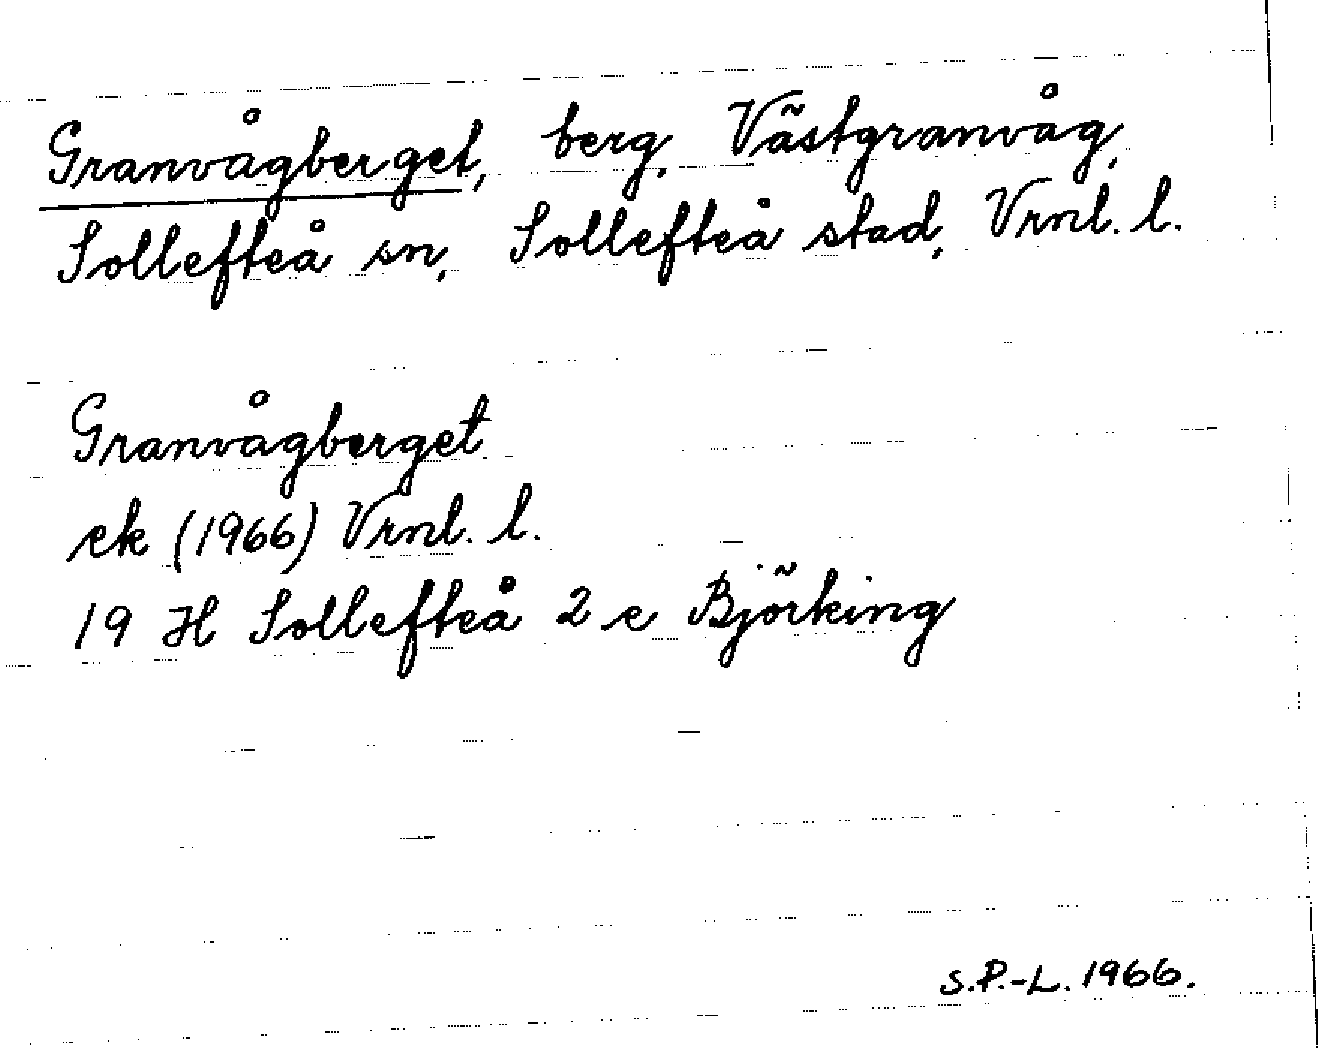 Granvågberget, berg, Västgranvåg,
Sollefteå sn, Sollefteå stad, Vrnl. l.
Granvågberget
ek (1966) Vrnl. l.
19 H Sollefteå 2 e Björking
S.P.-L. 1966.